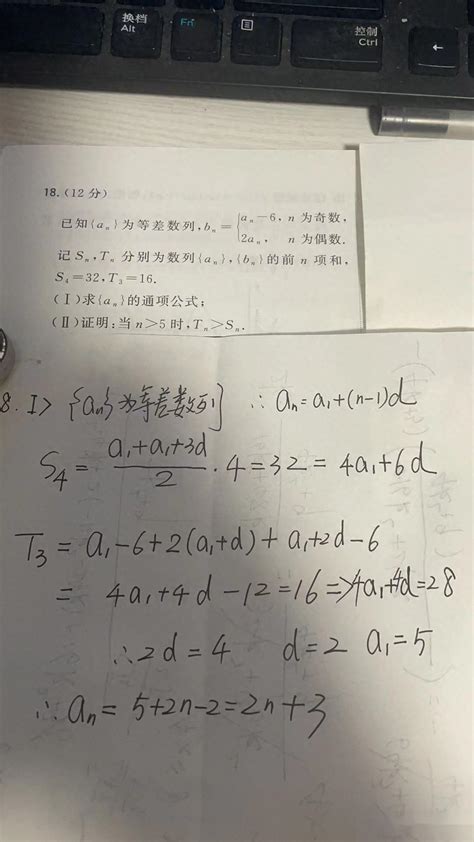 换档 Alt
Fn
控制 Ctrl
18.(12 分)
已知{aₙ}为等差数列,bₙ={aₙ-6, n 为奇数,
2aₙ, n 为偶数.
记 Sₙ,Tₙ 分别为数列{aₙ},{bₙ}的前 n 项和,
S₄=32,T₃=16.
(Ⅰ)求{aₙ}的通项公式;
(Ⅱ)证明:当 n>5 时,Tₙ>Sₙ.
8. I> {aₙ}为等差数列 ∴ aₙ=a₁+(n-1)d
S₄ = (a₁+a₁+3d)/2 · 4 = 32 = 4a₁+6d
T₃ = a₁-6+2(a₁+d)+a₁+2d-6
= 4a₁+4d-12=16=>4a₁+4d=28
∴2d=4 d=2 a₁=5
∴aₙ=5+2n-2=2n+3